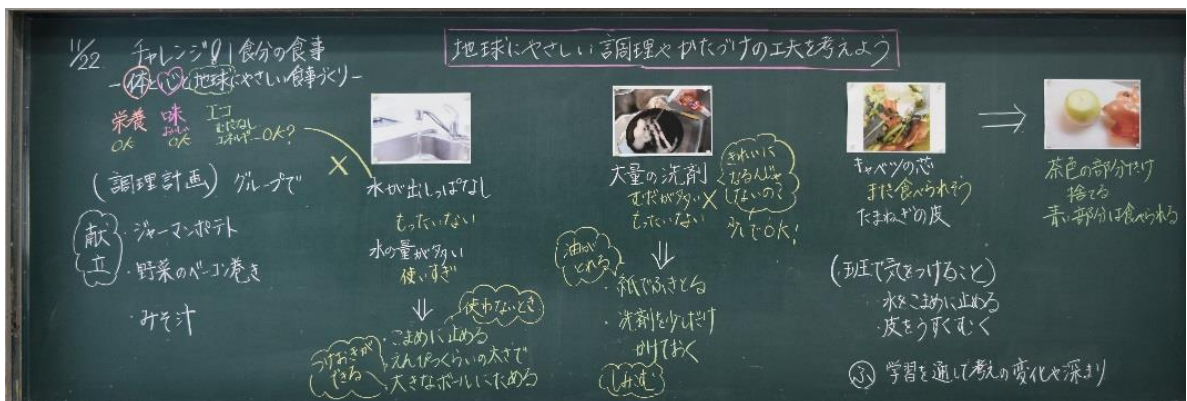 11/22 チャレンジ!! 1食分の食事
－体と心と地球にやさしい食事づくり－
地球にやさしい調理やかたづけの工夫を考えよう
栄養 OK
味 おいしい OK
エコ むだなし エネルギー OK?
(調理計画) グループで
献立
・ジャーマンポテト
・野菜のベーコン巻き
・みそ汁
×
水が出しっぱなし
もったいない
水の量が多い
使いすぎ
⇓
使わないとき
・こまめに止める
・えんぴつくらいの太さで
・大きなボールにためる
つけおきができる
大量の洗剤
むだが多い ×
もったいない
きれいになるんじゃないの?
少しでOK!
⇓
油がとれる
・紙でふきとる
・洗剤を少しだけ
かけておく
しみこむ
キャベツの芯
まだ食べられそう
たまねぎの皮
⇒
茶色の部分だけ
捨てる
青い部分は食べられる
(班で気をつけること)
・水をこまめに止める
・皮をうすくむく
ふ 学習を通して考えの変化や深まり